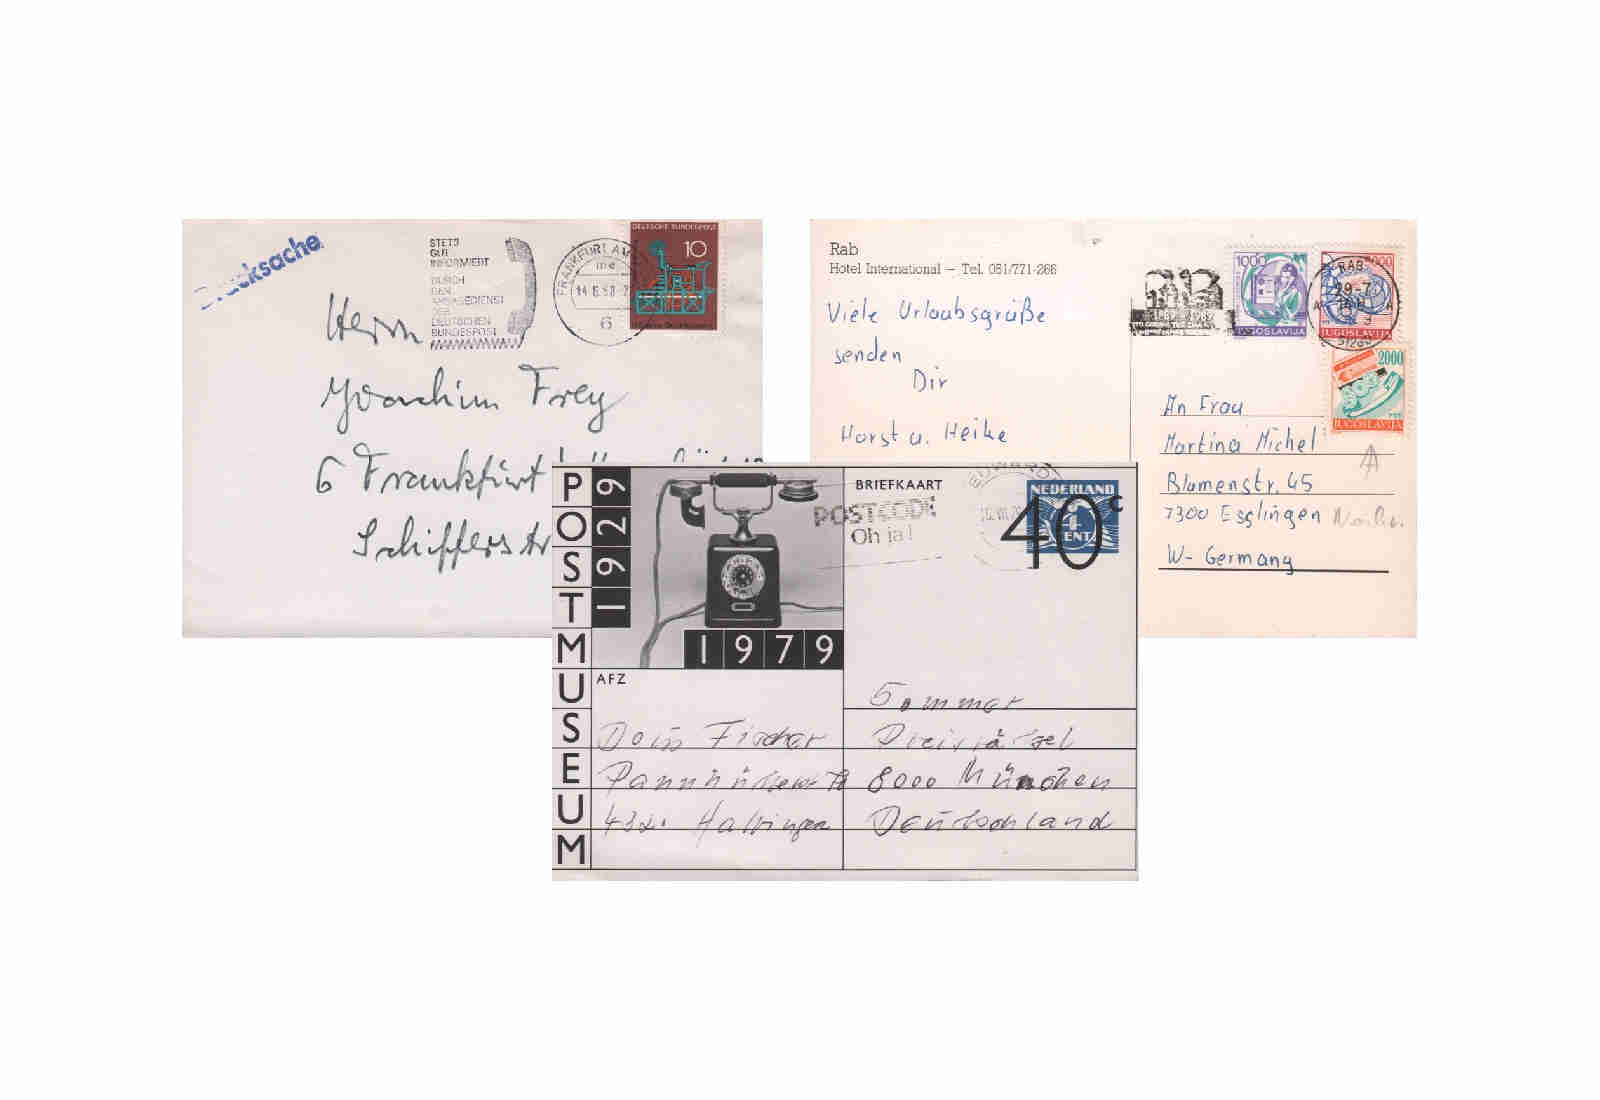 Drucksache
STETS
GUT
INFORMIERT
DURCH
DEN
ANSAGEDIENST
DER
DEUTSCHEN
BUNDESPOST
FRANKFURT AM
6
DEUTSCHE BUNDESPOST
10
Herrn
Joachim Frey
6 Frankfurt
Schifferstr
Rab
Hotel International – Tel. 051/771-266
Viele Urlaubsgrüße
senden
Dir
Horst u. Heike
1889 1989
1000
JUGOSLAVIJA
RAB
29-7
51280
JUGOSLAVIJA
2000
JUGOSLAVIJA
An Frau
Martina Michel
Blumenstr. 45
7300 Esslingen
W- Germany
POSTMUSEUM
1929
1979
BRIEFKAART
POSTCODE
Oh ja!
NEDERLAND
4
CENT
40c
AFZ
Doris Fischer
432. Hattingen
Sommer
Preisrätsel
8000 München
Deutschland